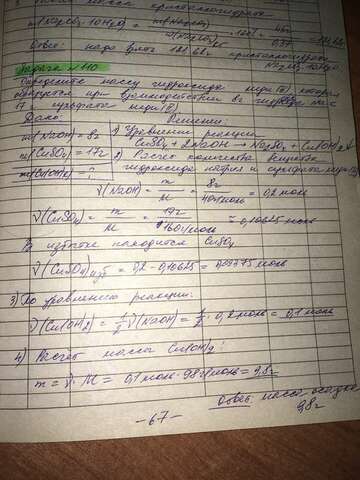 Ответ: надо взять
Задача №110
Определите массу гидроксида меди (II), которая
образуется при взаимодействии 8г гидроксида
17 г сульфата меди (II).
Дано: Решение:
m(NaOH) = 8г 1) Уравнение реакции
CuSO₄ + 2NaOH → Na₂SO₄ + Cu(OH)₂↓
m(CuSO₄) = 17г 2) Расчет количества вещества
m(Cu(OH)₂) - ? гидроксида натрия и сульфата меди (II)
ν(NaOH) = m/M = 8г/40г/моль = 0,2 моль
ν(CuSO₄) = m/M = 17г/160г/моль ≈ 0,10625 моль
В избытке находится CuSO₄
ν(CuSO₄)изб = 0,2 - 0,10625 = 0,09375 моль
3) По уравнению реакции:
ν(Cu(OH)₂) = 1/2 ν(NaOH) = 1/2 · 0,2 моль = 0,1 моль
4) Расчет массы Cu(OH)₂:
m = ν · M = 0,1 моль · 98 г/моль = 9,8г
Ответ: масса осадка
9,8г
-67-